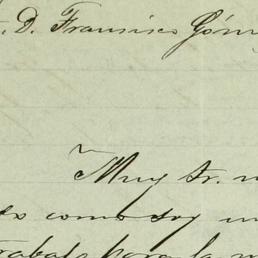 D. Francisco Góm
Muy Sr. m
como soy un
trabajo para la m